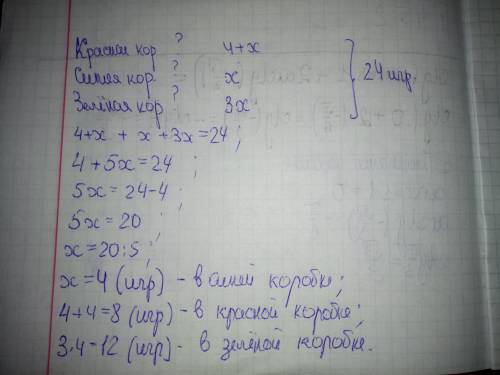 Красная кор ? 4+x
Синяя кор. ? x } 24 игр.
Зелёная кор ? 3x
4+x + x + 3x = 24 ;
4 + 5x = 24 ;
5x = 24-4 ;
5x = 20 ;
x = 20:5 ;
x = 4 (игр) - в синей коробке;
4+4=8 (игр) - в красной коробке;
3·4-12 (игр) - в зелёной коробке.